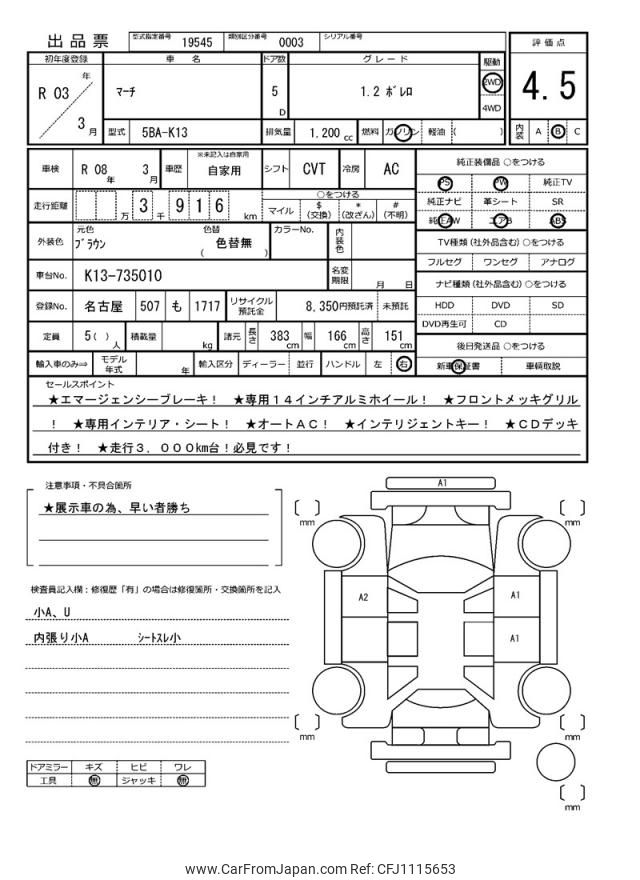 出品票
型式指定番号 19545 類別区分番号 0003 シリアル番号
評価点
初年度登録 車名 ドア数 グレード 駆動
R 03 年 マーチ 5 D 1.2 ボレロ 2WD 4WD
4.5
3 月 型式 5BA-K13 排気量 1.200 cc 燃料 ガソリン 軽油 ( )
内装 A B C
車検 R 08 年 3 月 車歴 ※未記入は自家用 自家用 シフト CVT 冷房 AC
純正装備品 ○をつける
PS PW 純正TV
走行距離 万 3 千 9 1 6 km
○をつける
マイル $ (交換) * (改ざん) # (不明)
純正ナビ 革シート SR
純正AW エアB ABS
外装色 元色 ブラウン 色替 ( 色替無 ) カラーNo. 内装色
TV種類 (社外品含む) ○をつける
フルセグ ワンセグ アナログ
車台No. K13-735010 名変期限 月 日
ナビ種類 (社外品含む) ○をつける
登録No. 名古屋 507 も 1717 リサイクル預託金 8,350円預託済 未預託
HDD DVD SD
DVD再生可 CD
定員 5( ) 人 積載量 kg 諸元 長さ 383 cm 幅 166 cm 高さ 151 cm
後日発送品 ○をつける
輸入車のみ⇒ モデル年式 年 輸入区分 ディーラー 並行 ハンドル 左 右
新車保証書 車輌取説
セールスポイント
★エマージェンシーブレーキ! ★専用14インチアルミホイール! ★フロントメッキグリル
! ★専用インテリア・シート! ★オートAC! ★インテリジェントキー! ★CDデッキ
付き! ★走行3.000km台!必見です!
注意事項・不具合箇所
★展示車の為、早い者勝ち
検査員記入欄:修復歴「有」の場合は修復箇所・交換箇所を記入
小A、U
内張り小A シートスレ小
A1
mm mm
A2 A1
A1
mm mm
mm
ドアミラー キズ ヒビ ワレ
工具 無 ジャッキ 無
www.CarFromJapan.com Ref: CFJ1115653